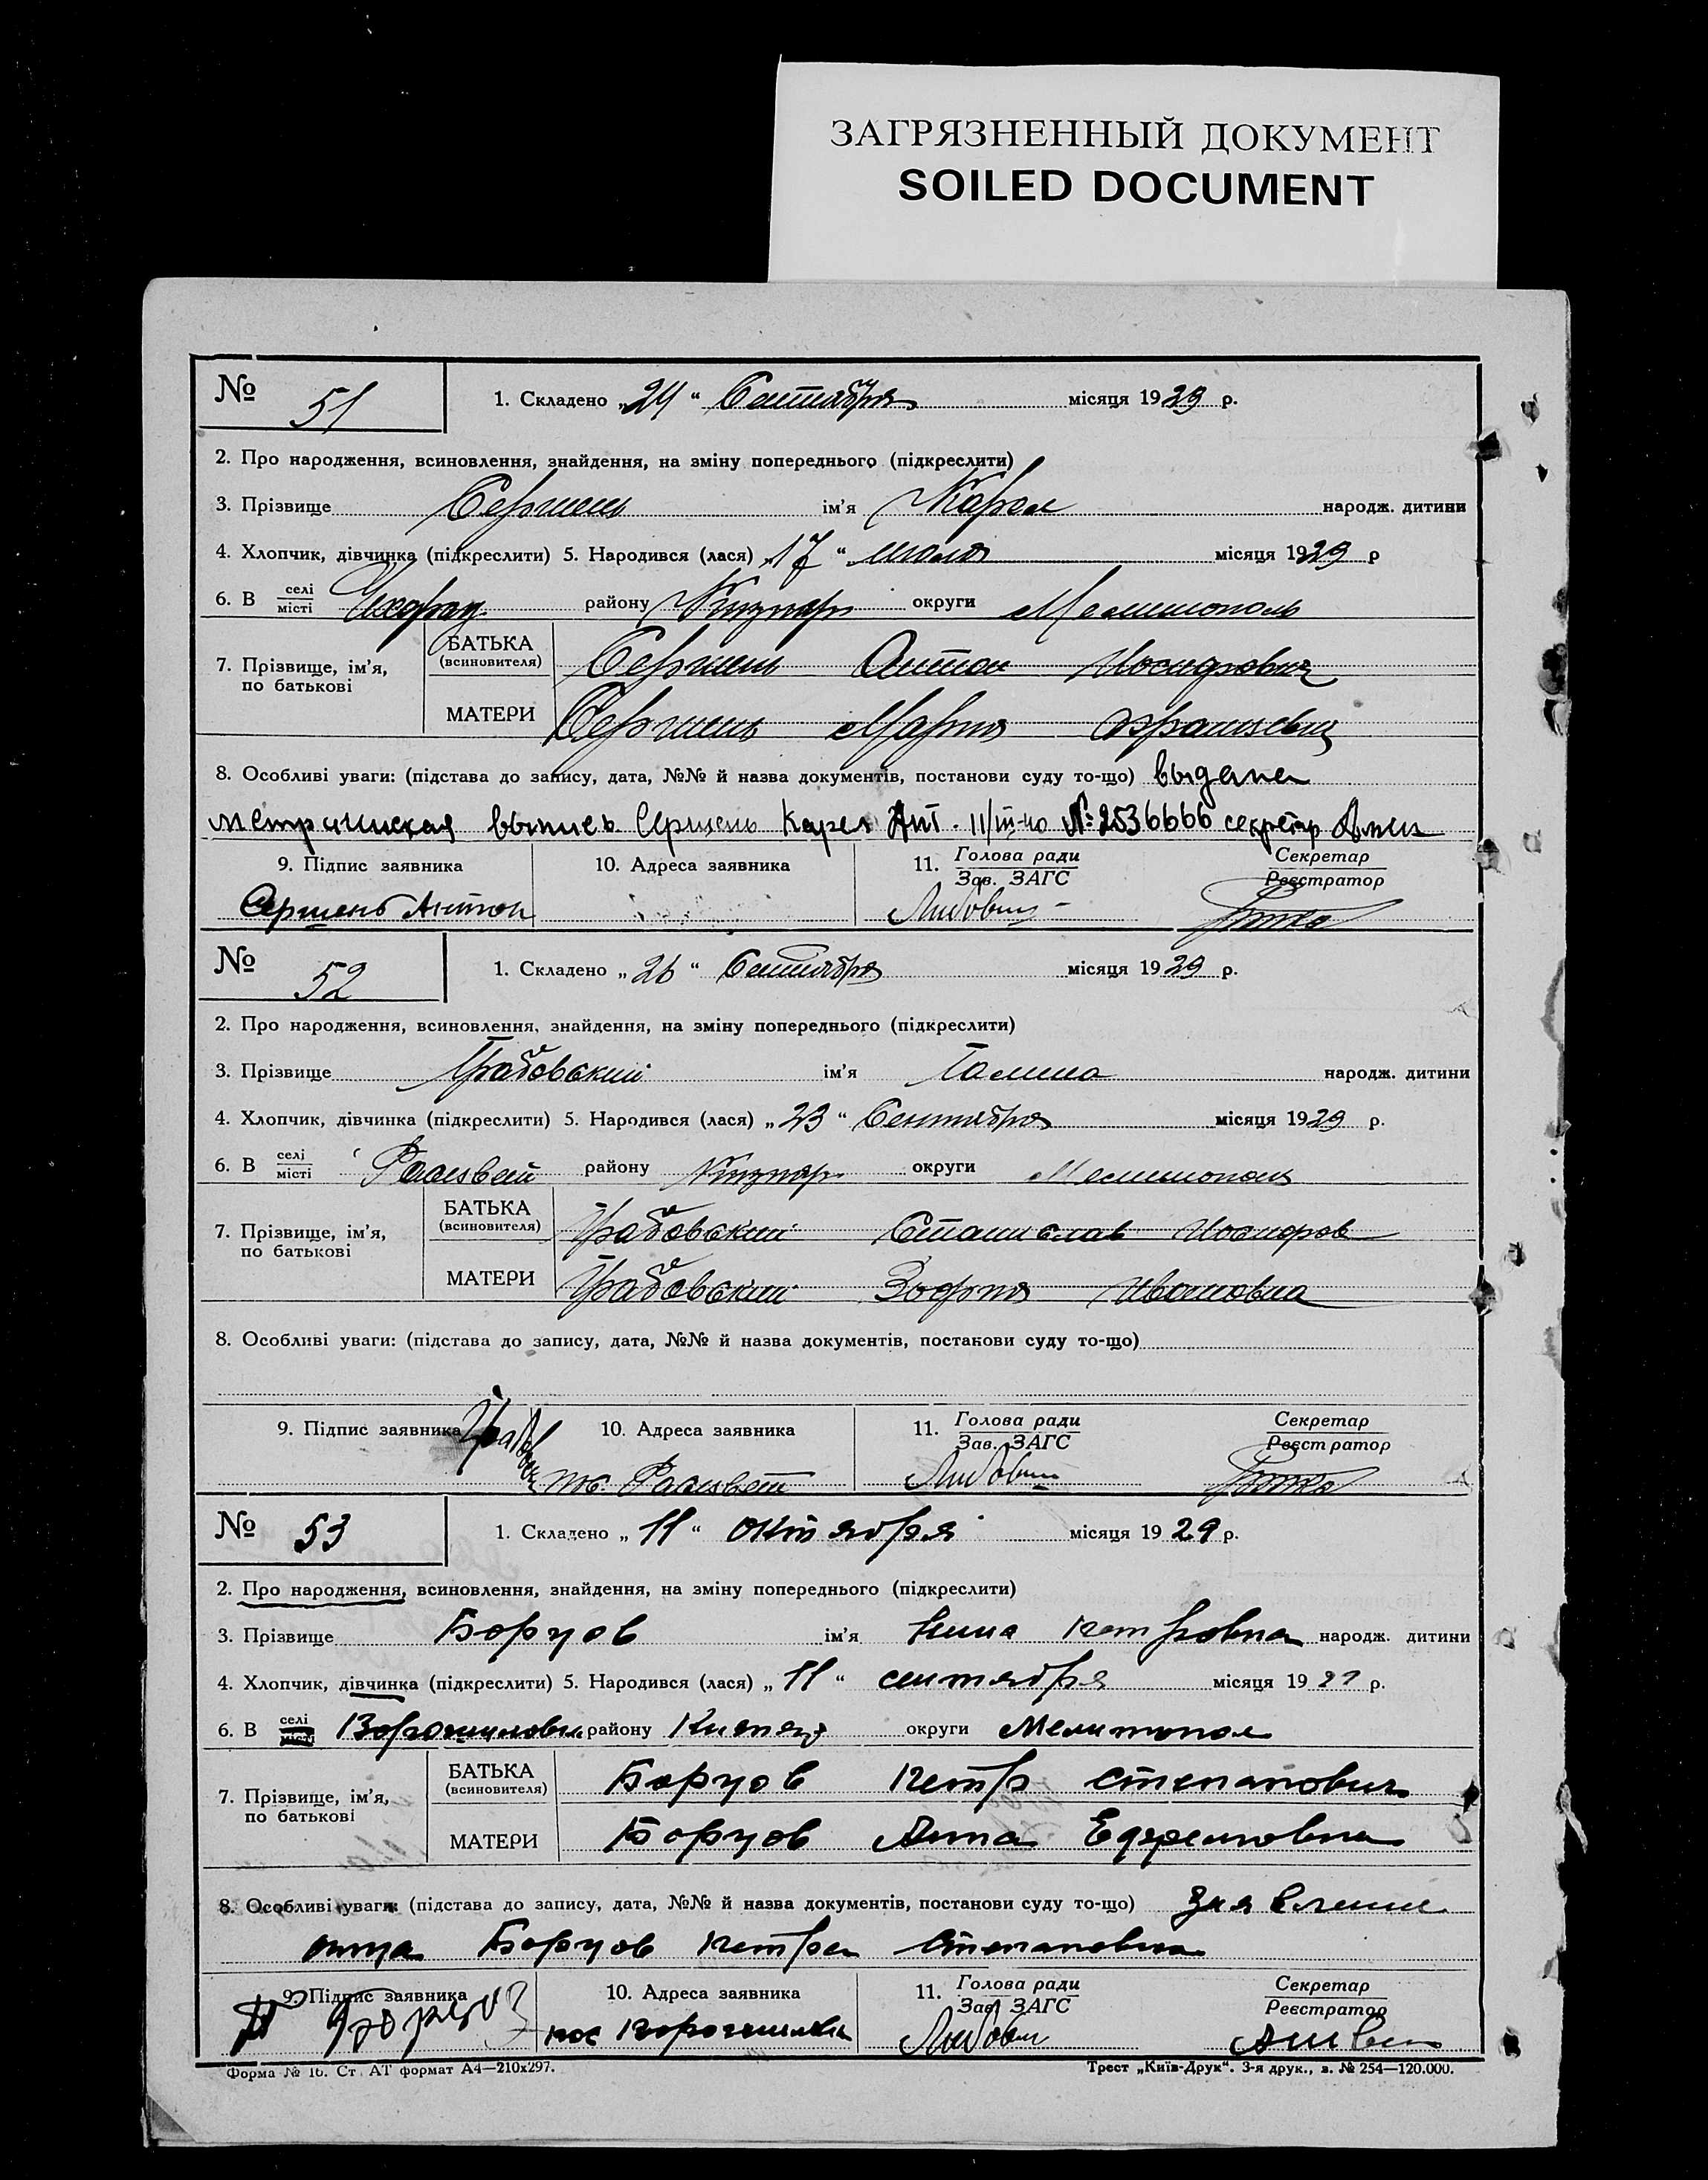 ЗАГРЯЗНЕННЫЙ ДОКУМЕНТ
SOILED DOCUMENT
№ 51 1. Складено „24“ Сентября місяця 1929 р.
2. Про народження, всиновлення, знайдення, на зміну попереднього (підкреслити)
3. Прізвище Сершень ім'я Карел народж. дитини
4. Хлопчик, дівчинка (підкреслити) 5. Народився (лася) „17“ июля місяця 1929 р
6. В селі місті району округи Мелитополь
7. Прізвище, ім'я, по батькові БАТЬКА (всиновителя) Сершень Антон Иосифович
МАТЕРИ Сершень Мария
8. Особливі уваги: (підстава до запису, дата, №№ й назва документів, постанови суду то-що) выдана
метрическая выпись Сершень Карел Ант. 11/III-40 № 2536666 секретар
9. Підпис заявника 10. Адреса заявника 11. Голова ради Зав. ЗАГС Секретар Реєстратор
Сершень Антон
№ 52 1. Складено „26“ Сентября місяця 1929 р.
2. Про народження, всиновлення, знайдення, на зміну попереднього (підкреслити)
3. Прізвище Грабовский ім'я Галина народж. дитини
4. Хлопчик, дівчинка (підкреслити) 5. Народився (лася) „23“ Сентября місяця 1929 р.
6. В селі місті району округи
7. Прізвище, ім'я, по батькові БАТЬКА (всиновителя) Грабовский Станислав Иосифов
МАТЕРИ Грабовский Зофия Ивановна
8. Особливі уваги: (підстава до запису, дата, №№ й назва документів, постанови суду то-що)
9. Підпис заявника 10. Адреса заявника 11. Голова ради Зав. ЗАГС Секретар Реєстратор
№ 53 1. Складено „11“ октября місяця 1929 р.
2. Про народження, всиновлення, знайдення, на зміну попереднього (підкреслити)
3. Прізвище Борцов ім'я Нина Петровна народж. дитини
4. Хлопчик, дівчинка (підкреслити) 5. Народився (лася) „11“ сентября місяця 19 р.
6. В селі місті району округи Мелитопол
7. Прізвище, ім'я, по батькові БАТЬКА (всиновителя) Борцов Петр Степанович
МАТЕРИ Борцов Анна Ефремовна
8. Особливі уваги: (підстава до запису, дата, №№ й назва документів, постанови суду то-що) Заявление
отца Борцов Петра Степановича
9. Підпис заявника 10. Адреса заявника 11. Голова ради Зав. ЗАГС Секретар Реєстратор
Форма № 16. Ст. АТ формат А4—210х297. Трест „Київ-Друк“. 3-я друк., з. № 254—120.000.